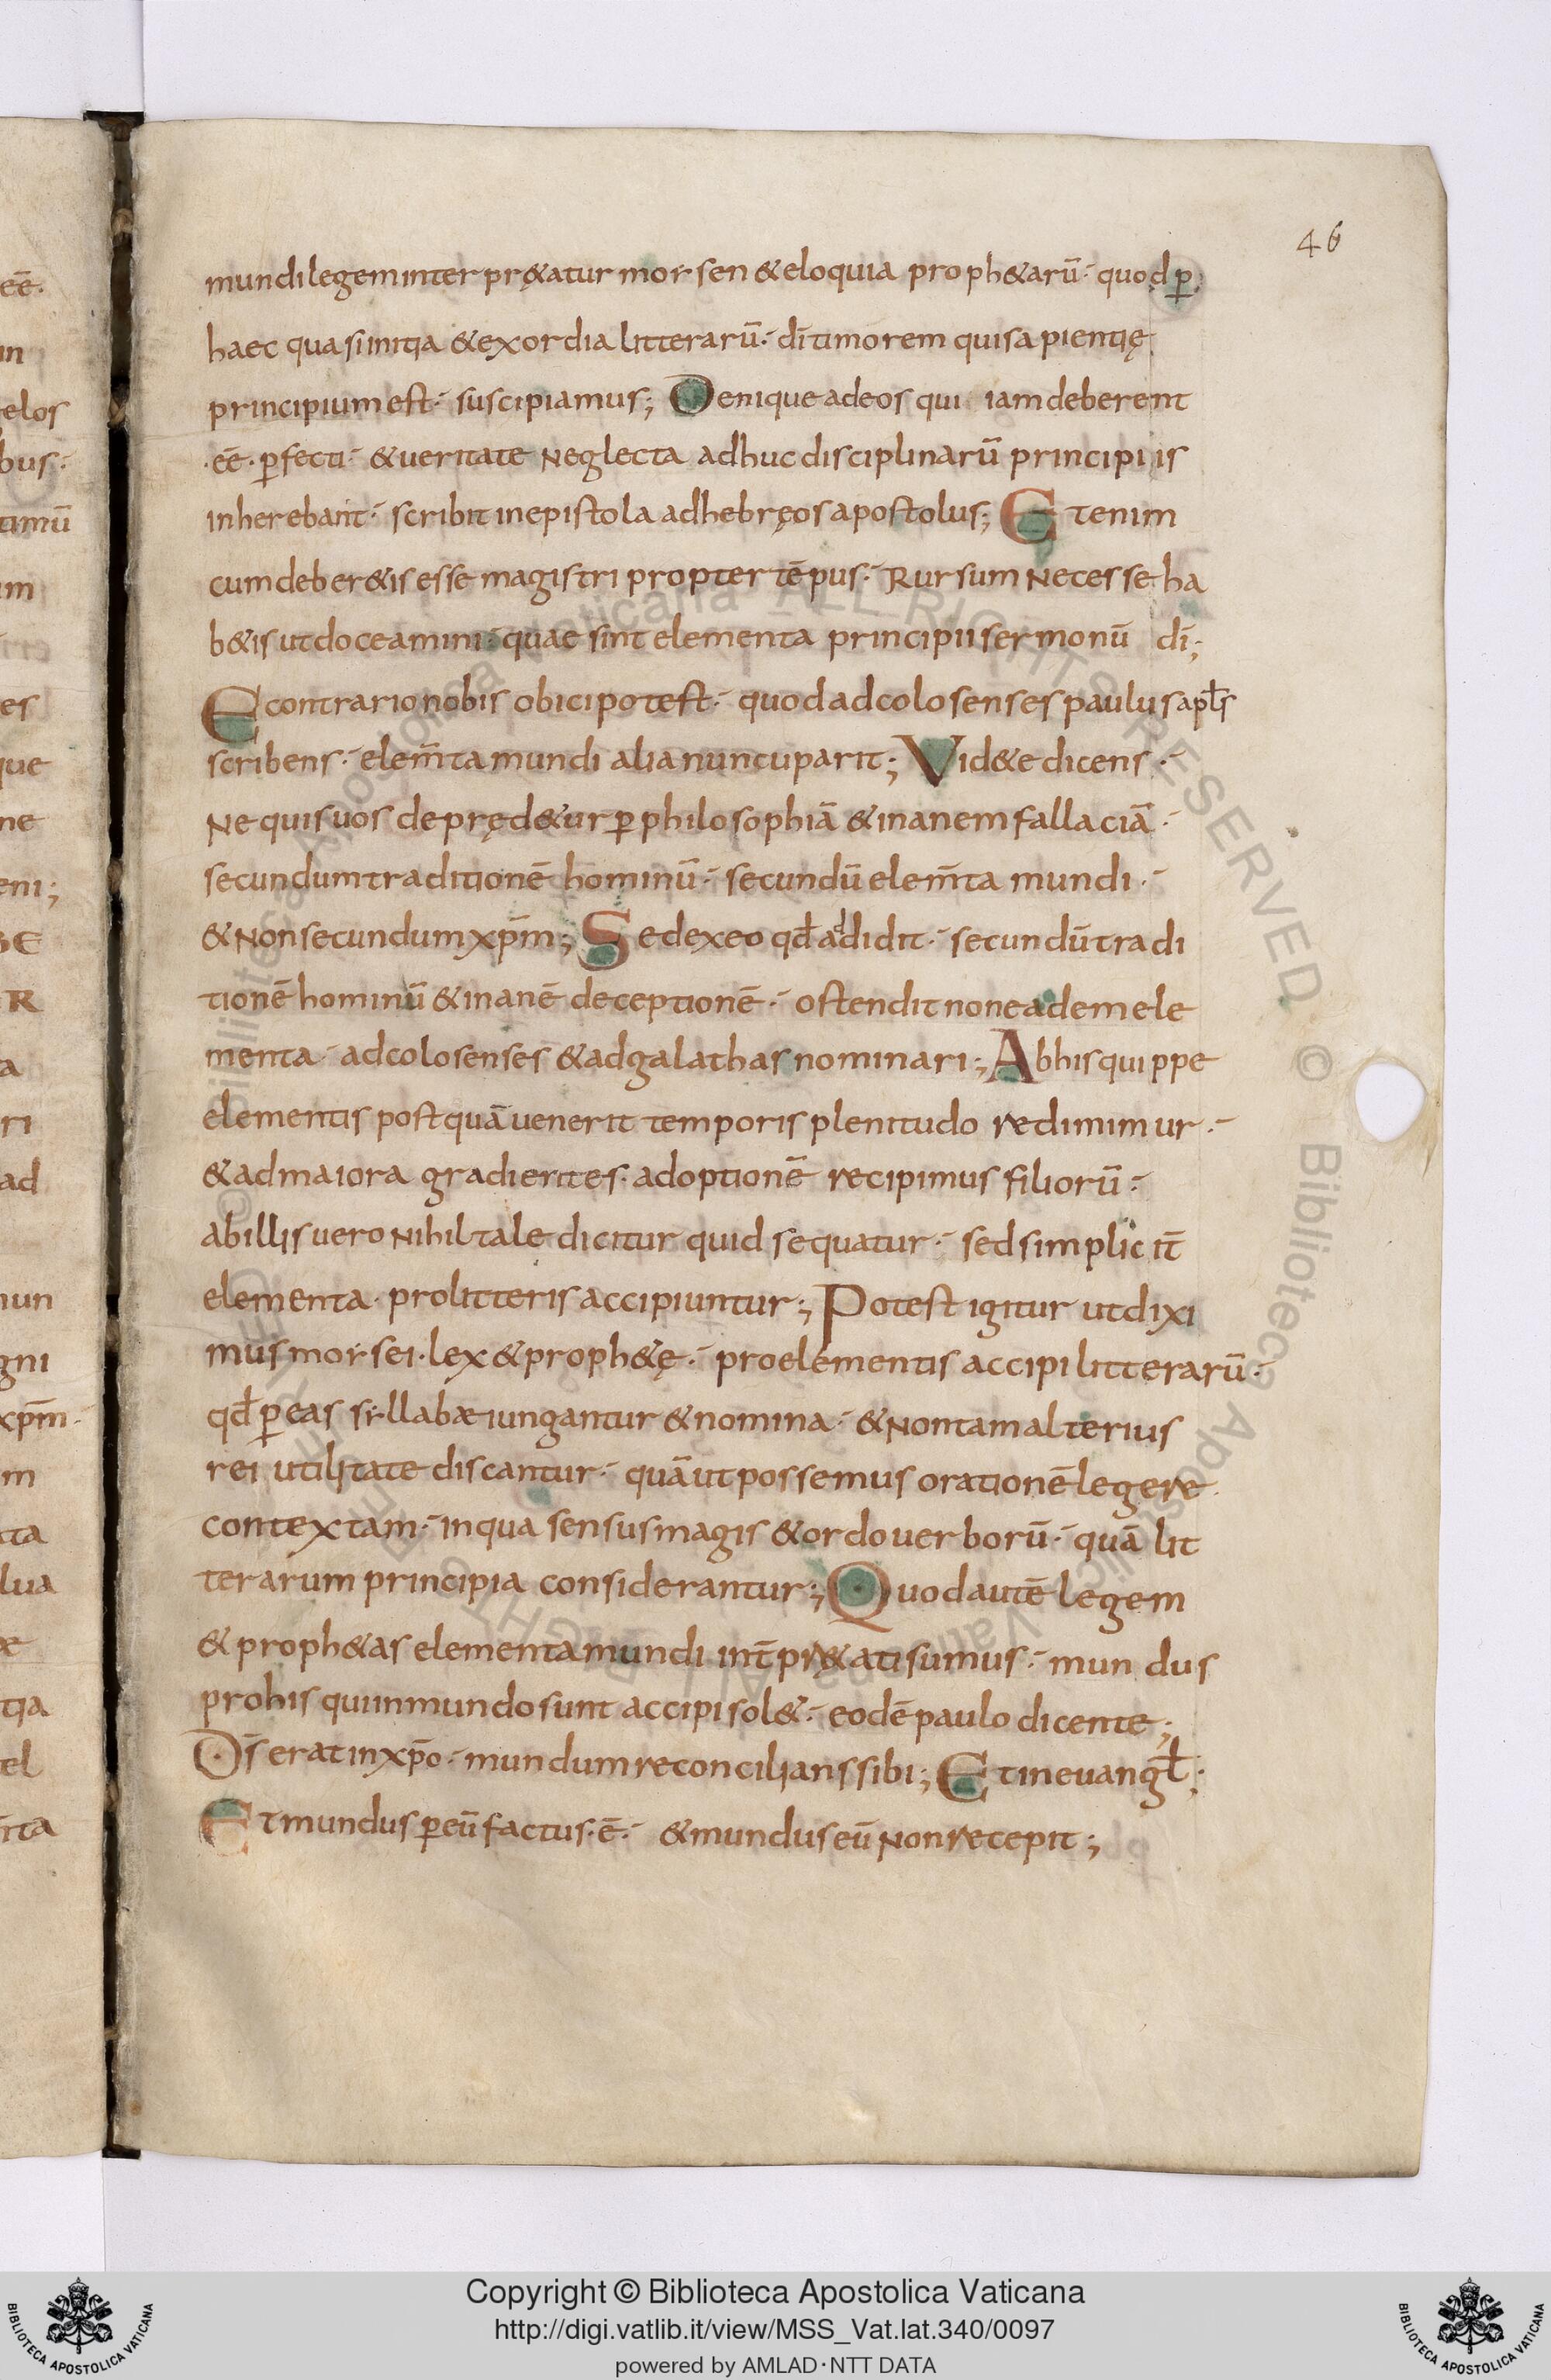 46
mundi legem interpr&atur morsen & eloquia proph&arū· quod p̱
haec quasi initia & exordia litterarū· dī timorem qui sapientię
principium est· suscipiamus; Denique ad eos qui iam deberent
·eē· ꝑfecti· & ueritate neglecta adhuc disciplinarū principiis
inherebant· scribit in epistola ad hebręos apostolus; Etenim
cum deber&is esse magistri propter tēpus· Rursum necesse ha
b&is ut doceamini· quae sint elementa principii sermonū dī;
E contrario nobis obici potest· quod ad colosenses paulus apƚs
scribens· elem̄ta mundi alia nuncuparit; Vid&e dicens·
Ne quis uos depręd&ur ꝑ philosophiā & inanem fallaciā·
secundum traditionē hominū· secundū elem̄ta mundi·
& non secundum xp̄m; Sed ex eo qđ addidit· secundū tradi
tionē hominū & inanē deceptionē· ostendit non eadem ele
menta· ad colosenses & ad galathas nominari; Ab his quippe
elementis postquā uenerit temporis plenitudo redimimur·
& ad maiora gradientes· adoptionē recipimus filiorū·
ab illis uero nihil tale dicitur quid sequatur· sed simplicit̄
elementa· pro litteris accipiuntur; Potest igitur ut dixi
mus morsei· lex & proph&ę· pro elementis accipi litterarū·
qđ ꝑ eas sillabæ iungantur & nomina· & non tam alterius
rei utilitate discantur· quā ut possemus orationē legere
contextam· in qua sensus magis & ordo uerborū· quā lit
terarum principia considerantur; Quod autē legem
& proph&as elementa mundi int̄pr&ati sumus· mundus
pro his qui in mundo sunt accipi sol&· eodē paulo dicente;
Dś erat in xp̄o· mundum reconcilians sibi; Et in euangƚ;
Et mundus ꝑ eū factus·ē· & mundus eū non recepit;
eē·
in
elos
bus·
timū
im
es
que
ne
eni;
GE
R
a
ri
ad
mun
gni
xp̄m·
m
ta
lua
æ
tia
el
m̄ta
© Biblioteca Apostolica Vaticana ALL RIGHTS RESERVED © Biblioteca Apostolica Vaticana ALL RIGHTS RESERVED
BIBLIOTECA APOSTOLICA VATICANA
Copyright © Biblioteca Apostolica Vaticana
http://digi.vatlib.it/view/MSS_Vat.lat.340/0097
powered by AMLAD·NTT DATA
BIBLIOTECA APOSTOLICA VATICANA